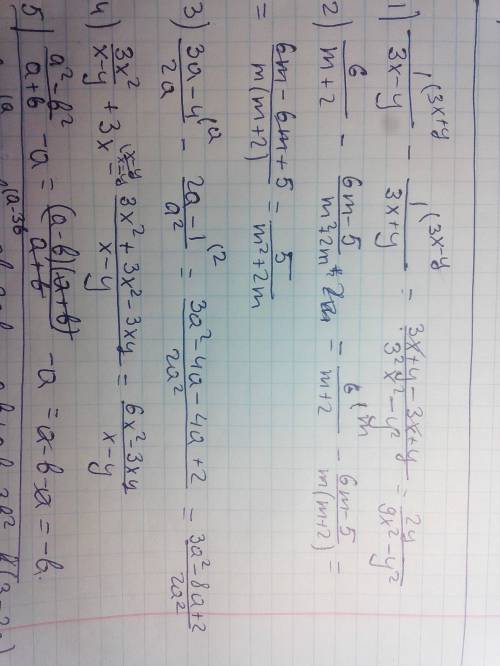 1) 1(3x+y / 3x-y - 1(3x-y / 3x+y = 3x+y-3x+y / 3²x²-y² = 2y / 9x²-y²
2) 6 / m+2 - 6m-5 / m²+2m = 6(m / m+2 - 6m-5 / m(m+2) =
= 6m-6m+5 / m(m+2) = 5 / m²+2m
3) 3a-4(a / 2a - 2a-1(2 / a² = 3a²-4a-4a+2 / 2a² = 3a²-8a+2 / 2a²
4) 3x² / x-y + 3x(x-y = 3x²+3x²-3xy / x-y = 6x²-3xy / x-y
5) a²-b² / a+b - a = (a-b)(a+b) / a+b - a = a-b-a = -b.